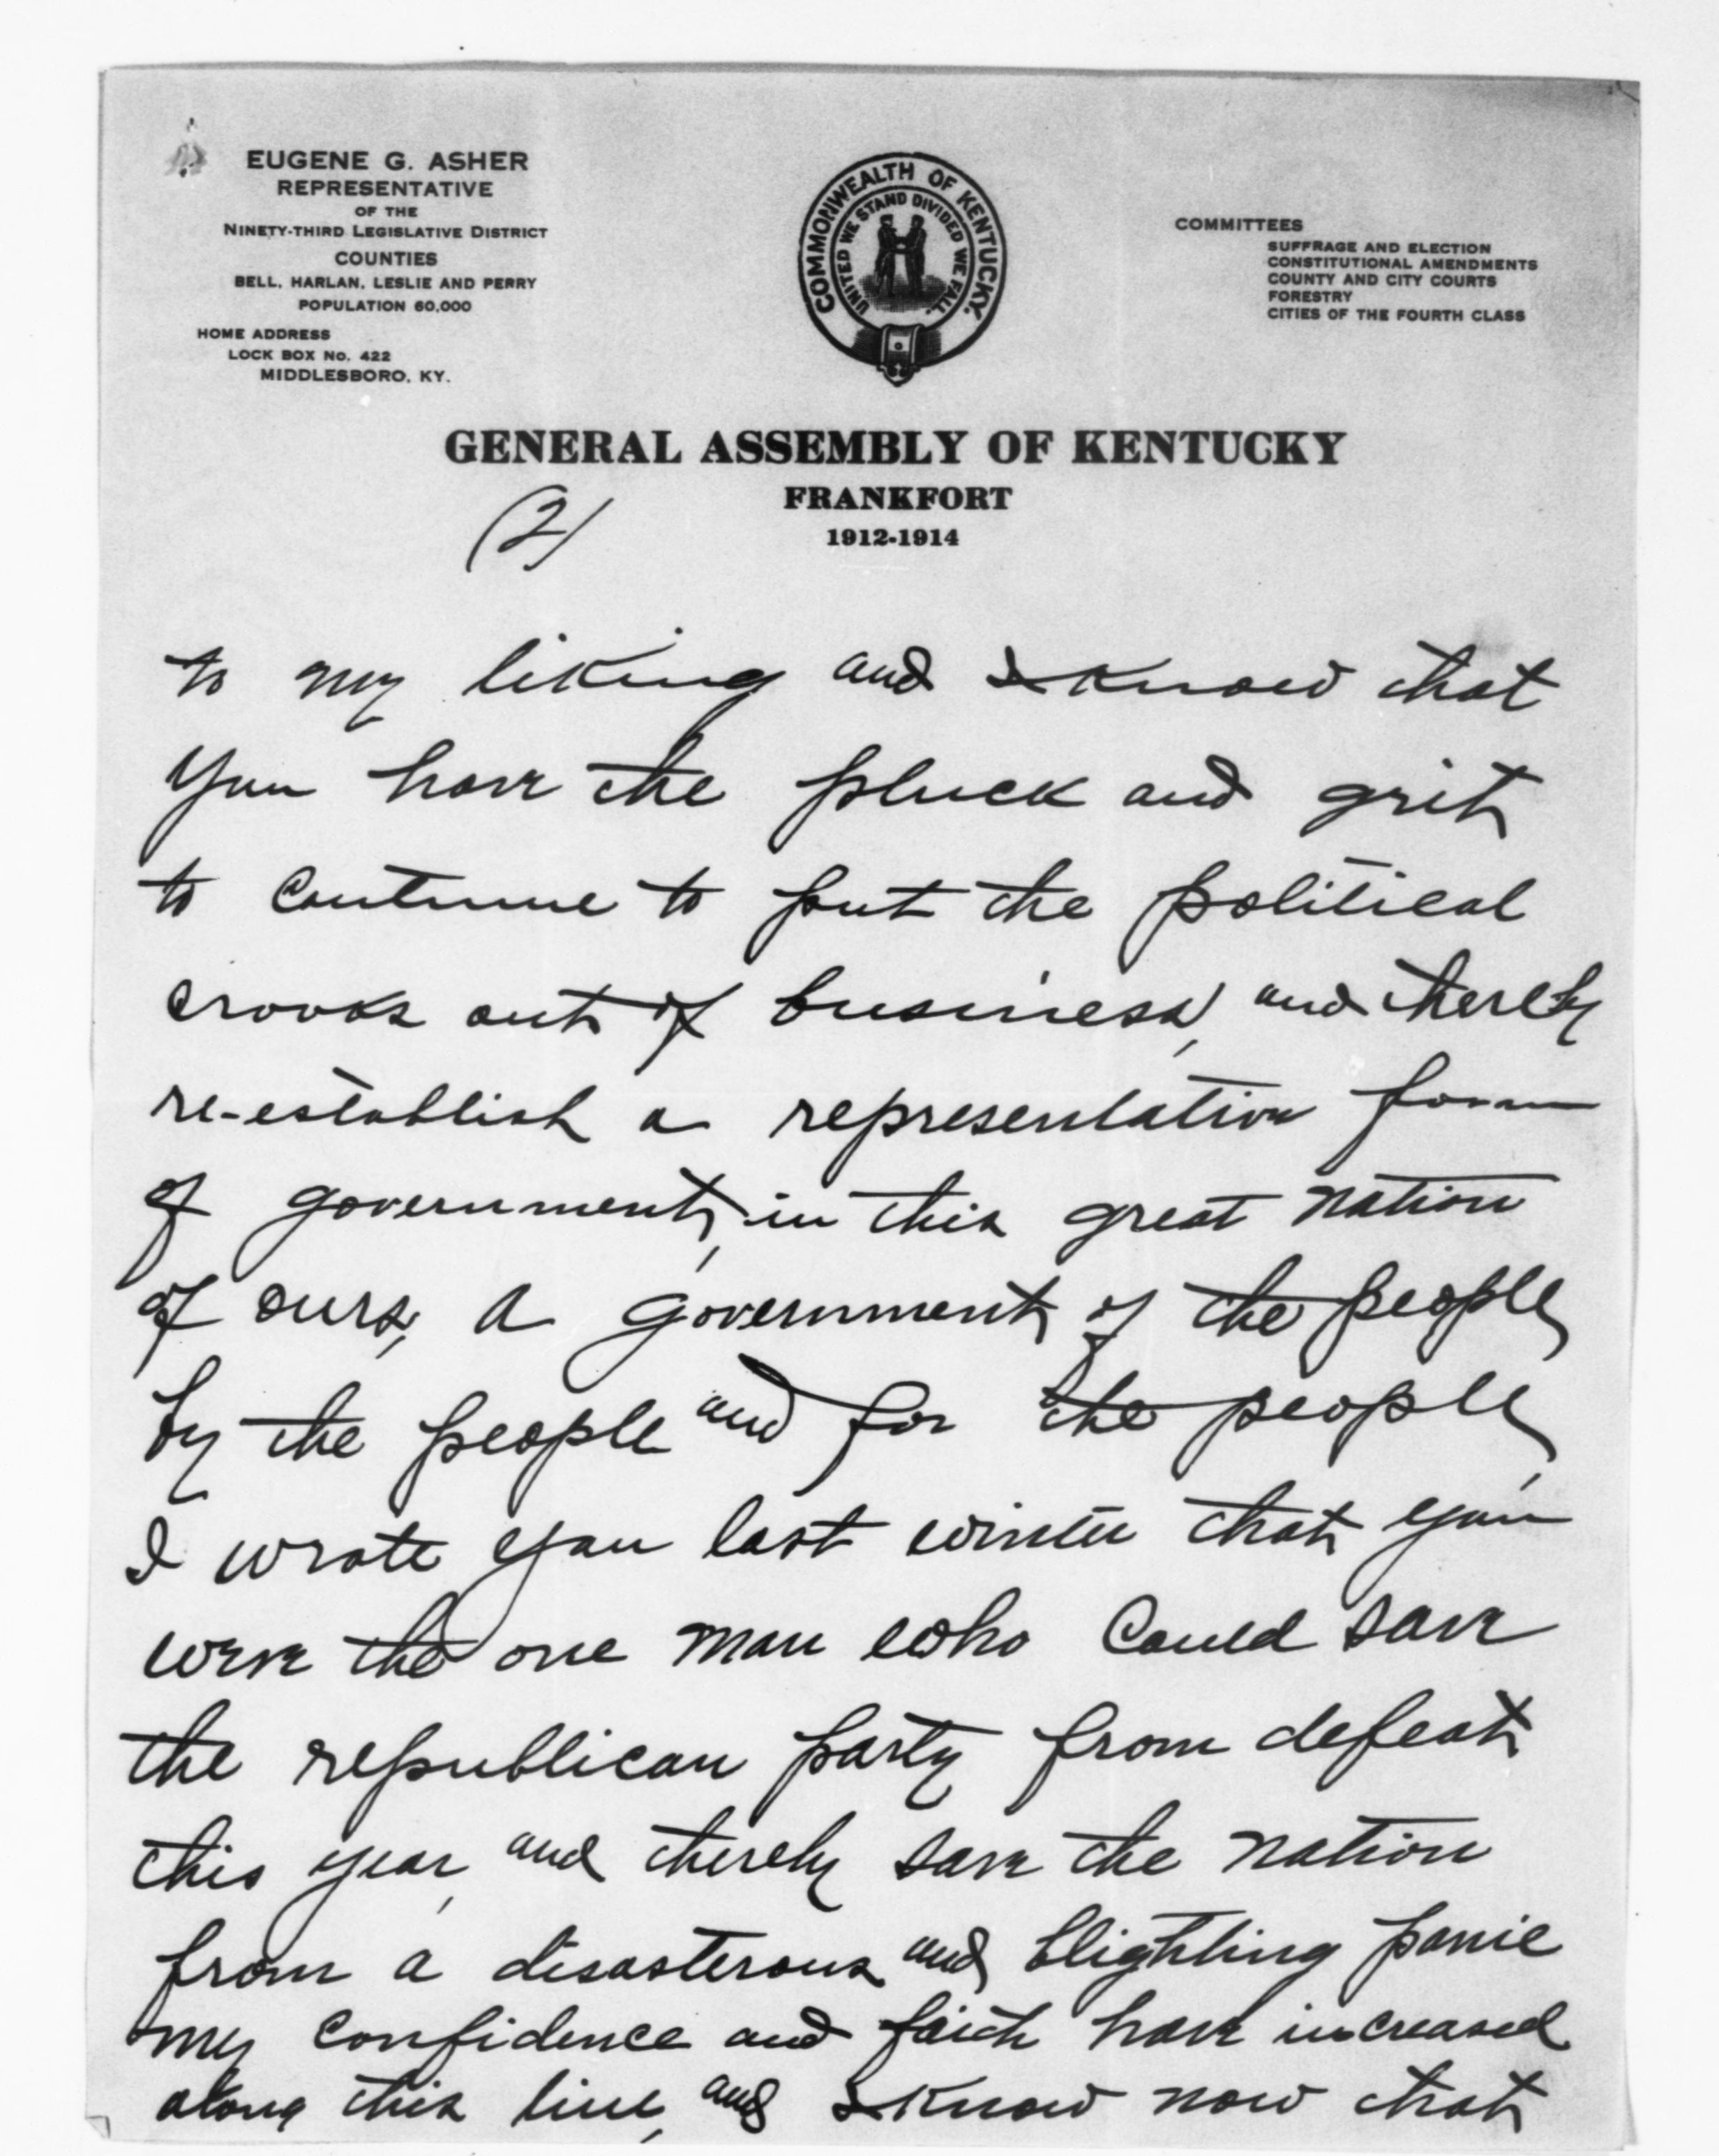 EUGENE G. ASHER
REPRESENTATIVE
OF THE
NINETY-THIRD LEGISLATIVE DISTRICT
COUNTIES
BELL, HARLAN, LESLIE AND PERRY
POPULATION 60,000
HOME ADDRESS
LOCK BOX No. 422
MIDDLESBORO, KY.
COMMONWEALTH OF KENTUCKY.
UNITED WE STAND DIVIDED WE FALL.
COMMITTEES
SUFFRAGE AND ELECTION
CONSTITUTIONAL AMENDMENTS
COUNTY AND CITY COURTS
FORESTRY
CITIES OF THE FOURTH CLASS
GENERAL ASSEMBLY OF KENTUCKY
FRANKFORT
1912-1914
(2)
to my liking and I know that
you have the pluck and grit
to continue to put the political
crooks out of business, and thereby
re-establish a representative form
of government, in this great nation
of ours, a government of the people
by the people and for the people,
I wrote you last winter that you
were the one man who could save
the republican party from defeat
this year, and thereby save the nation
from a disasterous and blighting panic
my confidence and faith have increased
along this line, and I know now that